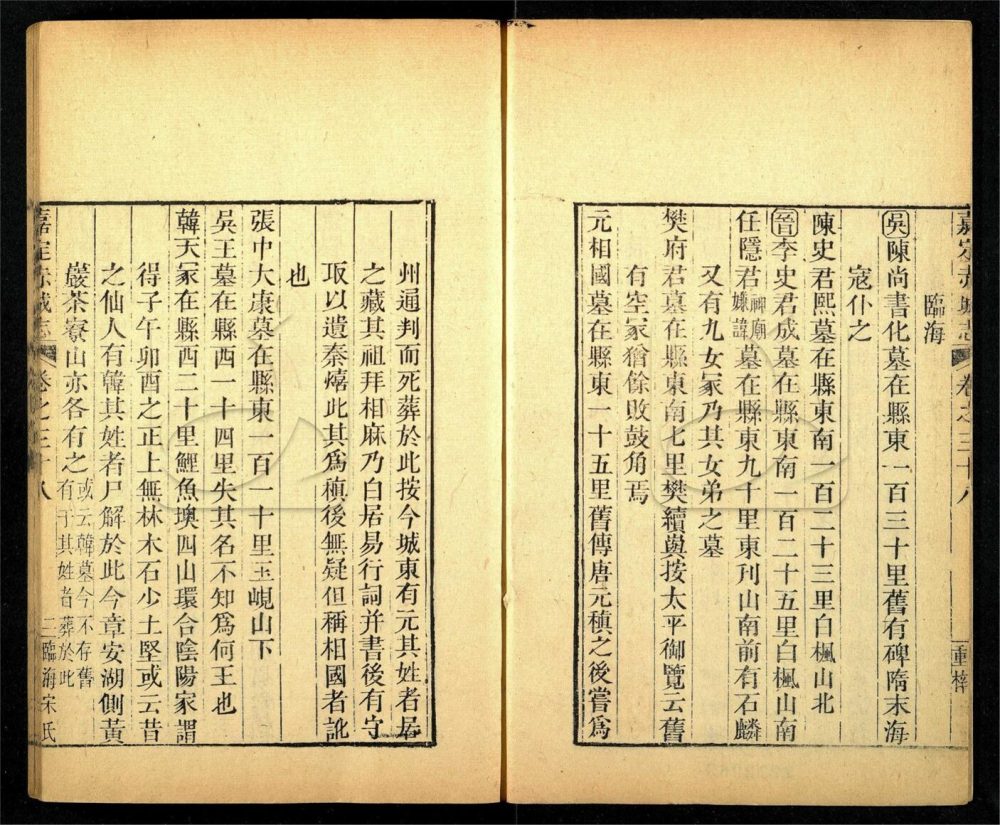 嘉定赤城志 卷之三十八 重梓
臨海
吳陳尚書化墓在縣東一百三十里舊有碑隋末海
寇仆之
陳史君熙墓在縣東南一百二十三里白楓山北
晉李史君成墓在縣東南一百二十五里白楓山南
任隱君碑廟嫌諱墓在縣東九十里東刋山南前有石麟
又有九女冢乃其女弟之墓
樊府君墓在縣東南七里樊續輿按太平御覽云舊
有空冢猶餘敗鼓角焉
元相國墓在縣東一十五里舊傳唐元稹之後嘗爲
州通判而死葬於此按今城東有元其姓者居
之藏其祖拜相麻乃白居易行詞并書後有守
取以遺秦熺此其爲稹後無疑但稱相國者訛
也
張中大康墓在縣東一百一十里玉峴山下
吳王墓在縣西一十四里失其名不知爲何王也
韓天冢在縣西二十里鯉魚墺四山環合陰陽家謂
得子午卯酉之正上無林木石少土堅或云昔
之仙人有韓其姓者尸解於此今章安湖側黃
巖茶寮山亦各有之或云韓墓今不存舊
有于其姓者葬於此
嘉定赤城志 卷之三十八 三 臨海宋氏